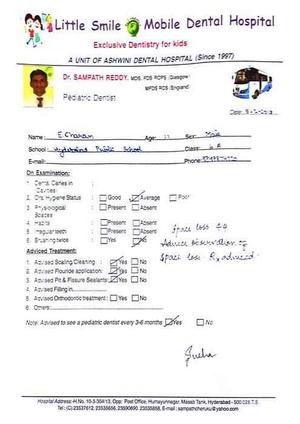 Little Smile Mobile Dental Hospital
Exclusive Dentistry for kids
A UNIT OF ASHWINI DENTAL HOSPITAL (Since 1997)
Dr. SAMPATH REDDY. MDS, FDS RCPS (Glasgow)
MFDS RCS (England)
Pediatric Dentist
Date:
Name: E. Charan Age: Sex: Male
School: Hyderabad Public School Class:
E-mail: Phone:
On Examination:
1 Dental Caries in Cavities:
2 Oral Hygiene Status : Good Average Poor
3 Physiological Spaces : Present Absent
4 Habits : Present Absent
5 Irregular teeth : Present Absent
6 Brushing twice : Yes No
Space loss
Advice observation of
Space loss
Adviced Treatment:
1. Advised Scaling/Cleaning : Yes No
2. Advised Flouride application: Yes No
3. Advised Pit & Fissure Sealants: Yes No
4. Advised Filling in
5. Advised Orthodontic treatment : Yes No
6. Others:
Note: Advised to see a pediatric dentist every 3-6 months Yes No
Hospital Address:-H.No. 10-3-304/13, Opp: Post Office, Humayunnagar, Masab Tank, Hyderabad - 500 028 T.S
Tel: (O) 23537612, 23535656, 23590690, 23535858, E-mail: sampathcheruku@yahoo.com